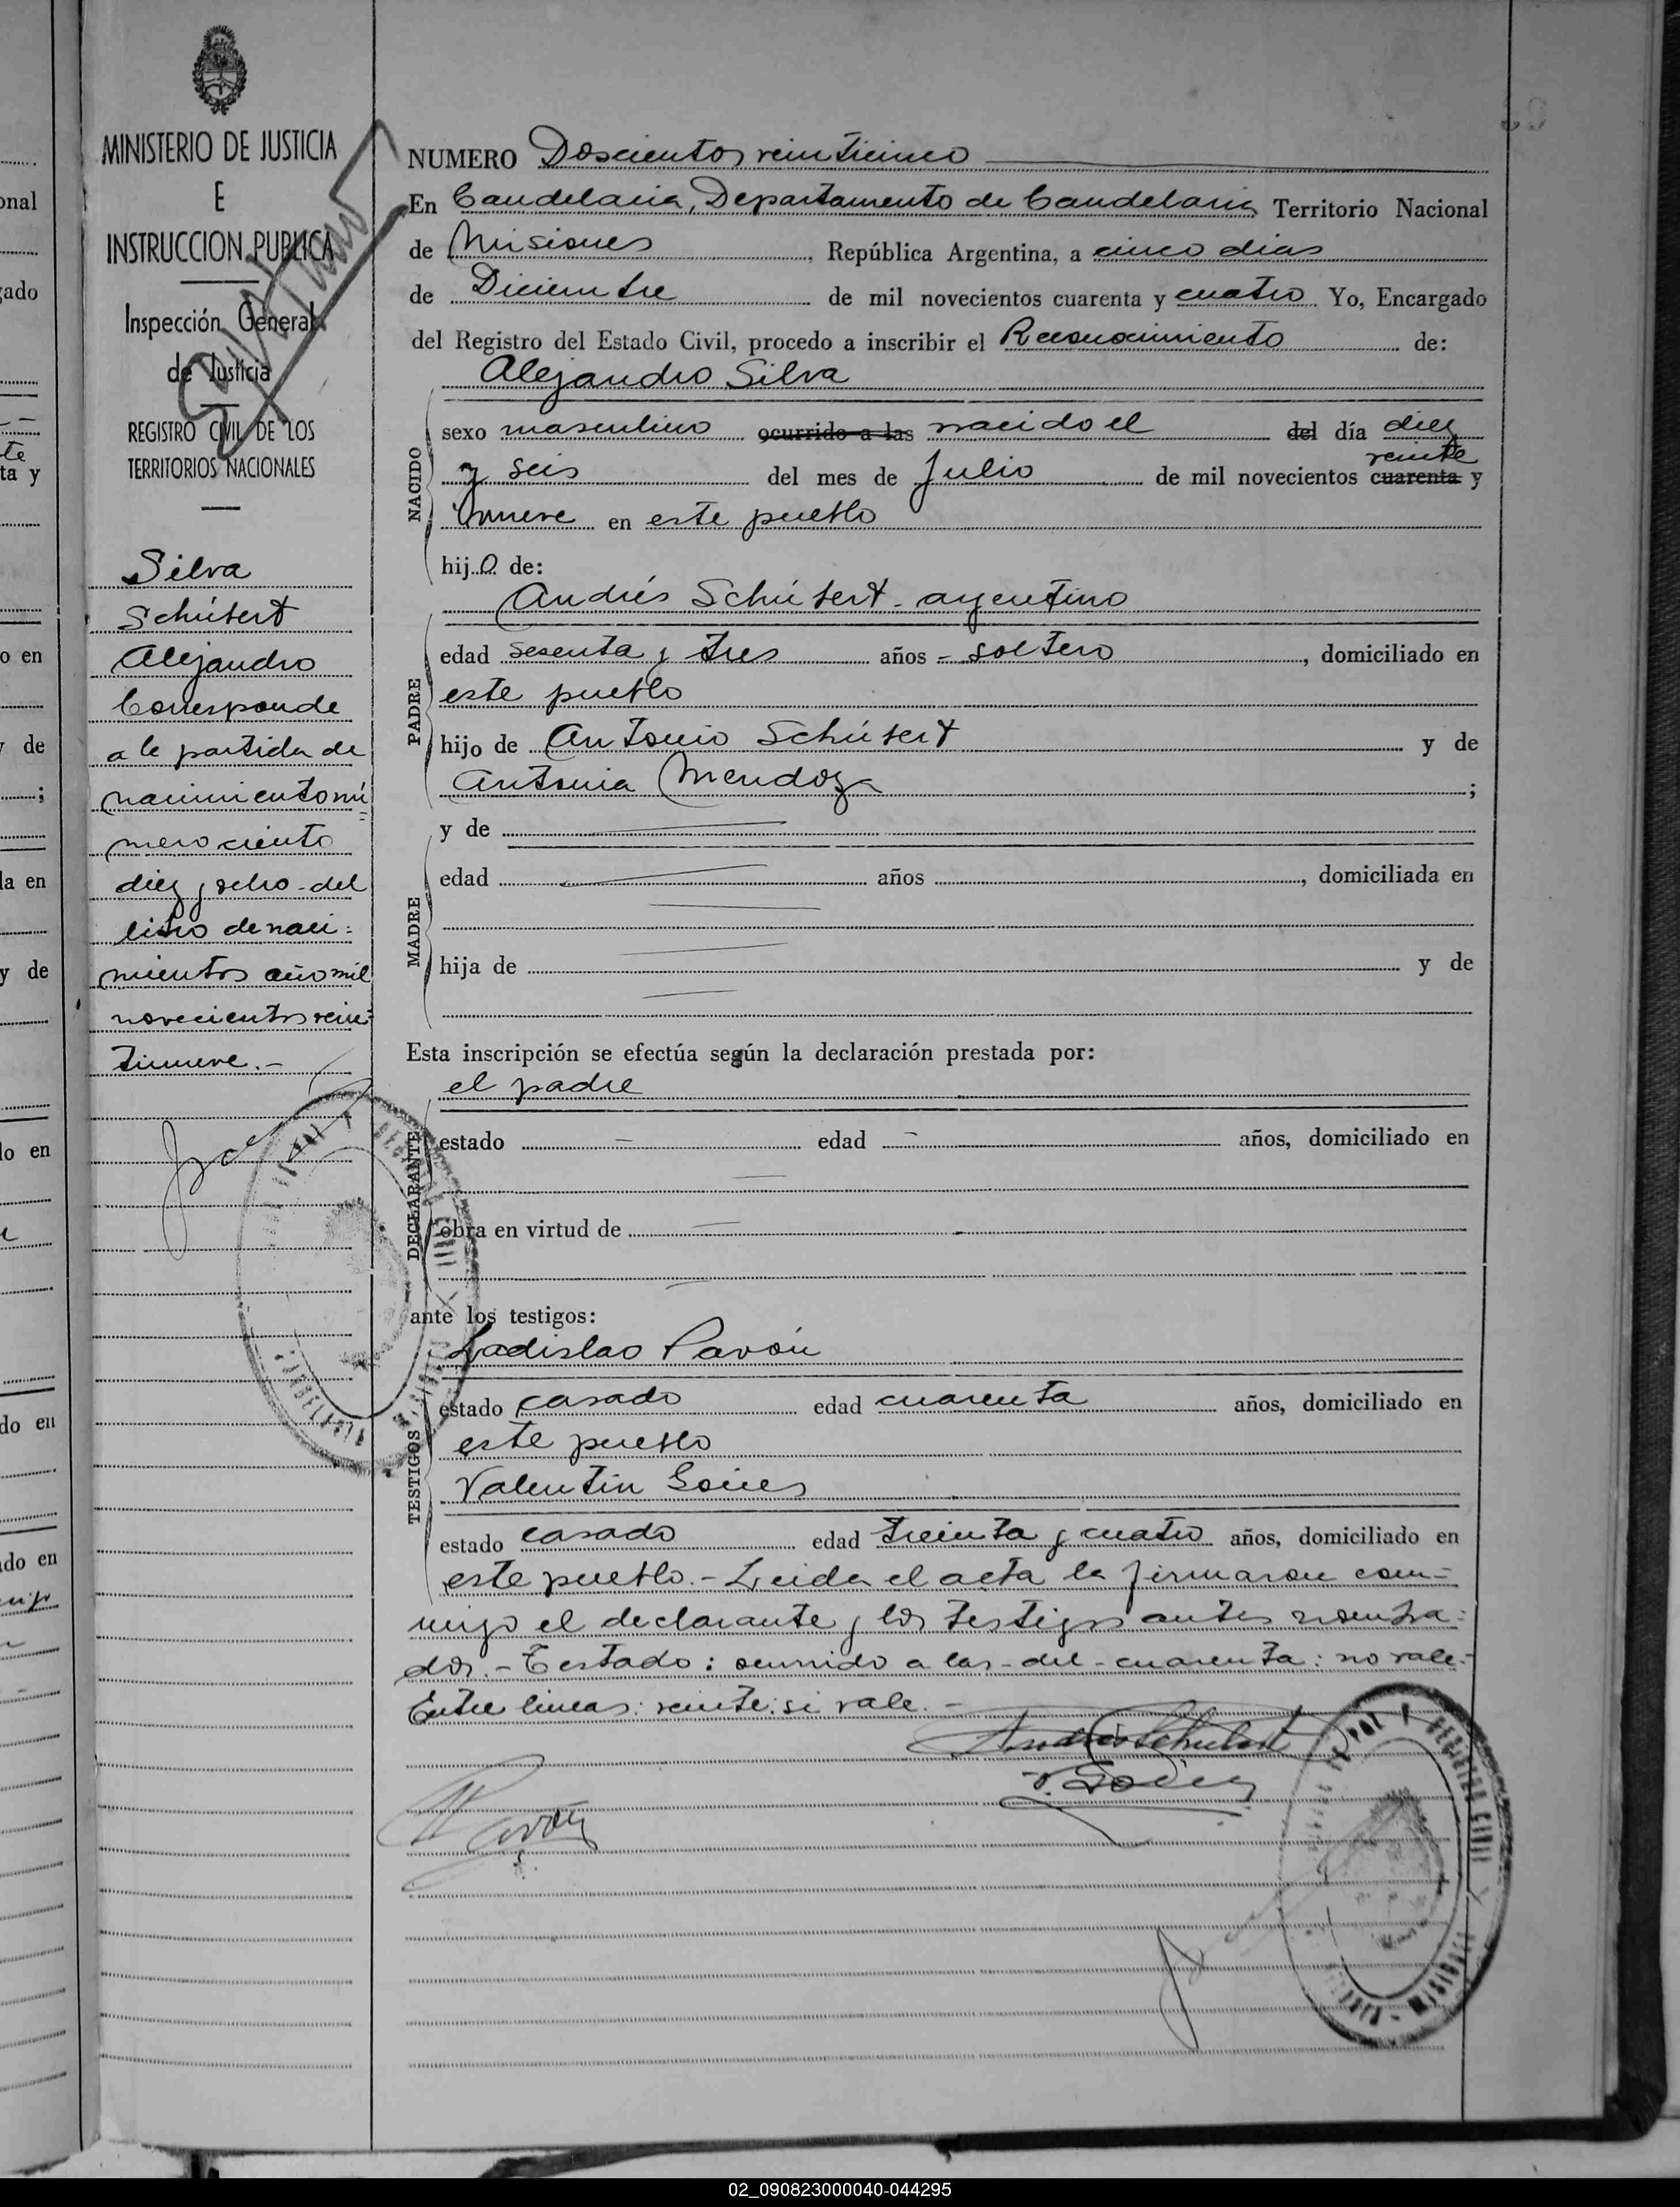 MINISTERIO DE JUSTICIA
E
INSTRUCCION PUBLICA
Inspección General
de Justicia
REGISTRO CIVIL DE LOS
TERRITORIOS NACIONALES
Silva
Schúbert
Alejandro
Corresponde
a la partida de
nacimiento nú
mero ciento
diez y ocho - del
libro de naci=
mientos año mil
novecientos vein=
tinueve.-
NUMERO Doscientos veinticinco
En Candelaria, Departamento de Candelaria Territorio Nacional
de Misiones, República Argentina, a cinco dias
de Diciembre de mil novecientos cuarenta y cuatro Yo, Encargado
del Registro del Estado Civil, procedo a inscribir el Reconocimiento de:
Alejandro Silva
NACIDO
sexo masculino ocurrido a las nacido el del día diez
y seis del mes de Julio de mil novecientos cuarenta veinte y
nueve en este pueblo
hijo de:
PADRE
Andrés Schúbert - argentino
edad sesenta y tres años - soltero, domiciliado en
este pueblo
hijo de Antonio Schúbert y de
Antonia Mendoza;
MADRE
y de
edad años, domiciliada en
hija de y de
Esta inscripción se efectúa según la declaración prestada por:
DECLARANTE
el padre
estado - edad - años, domiciliado en
obra en virtud de
ante los testigos:
TESTIGOS
Ladislao Pavón
estado casado edad cuarenta años, domiciliado en
este pueblo
Valentin Goires
estado casado edad treinta y cuatro años, domiciliado en
este pueblo.- Leida el acta la firmaron con=
migo el declarante y los testigos antes nombra=
dos.- Testado: ocurrido a las - del - cuarenta: no vale.-
Entre lineas: veinte: si vale.-
Andrés Schubert
02_090823000040-044295